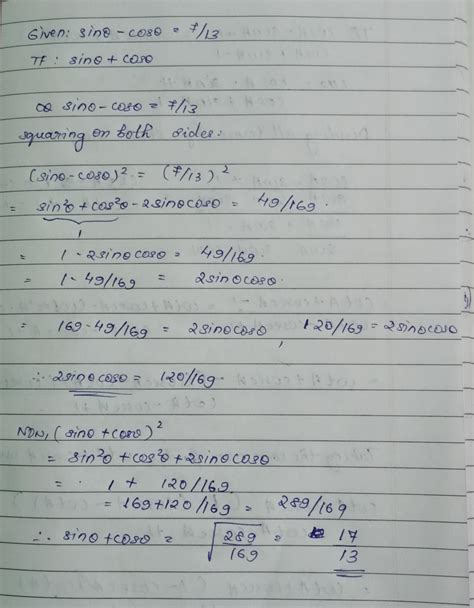 Given: sinθ - cosθ = 7/13
TF: sinθ + cosθ
∞ sinθ - cosθ = 7/13
squaring on both sides:
(sinθ-cosθ)² = (7/13)²
= sin²θ + cos²θ - 2sinθcosθ = 49/169.
1
= 1 - 2sinθcosθ = 49/169.
= 1 - 49/169 = 2sinθcosθ.
= 169-49/169 = 2sinθcosθ, 120/169 = 2sinθcosθ
∴ 2sinθcosθ = 120/169.
NOW, (sinθ + cosθ)²
= sin²θ + cos²θ + 2sinθcosθ
= 1 + 120/169.
= 169+120/169 = 289/169
∴ sinθ + cosθ = √289/169 = 17/13